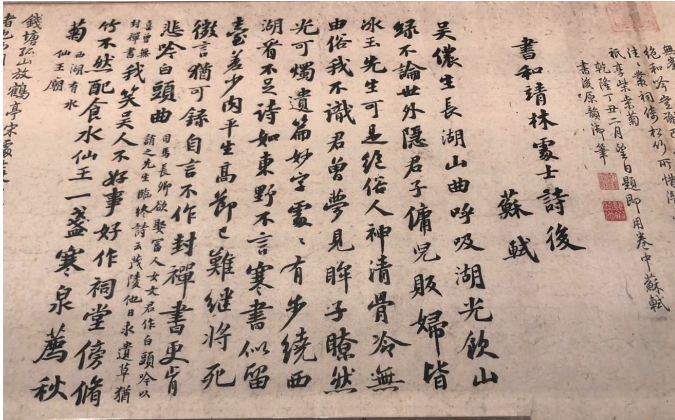 乾隆丁丑二月望日題即用卷中蘇軾
書後原韻御筆
書和靖林處士詩後
蘇軾
吳儂生長湖山曲呼吸湖光飲山
綠不論世外隱君子傭兒販婦皆
冰玉先生可是絕俗人神清骨冷無
由俗我不識君曾夢見眸子瞭然
光可燭遺篇妙字處々有步繞西
湖看不足詩如東野不言寒書似留
臺差少肉平生高節已難繼將死
微言猶可錄自言不作封禪書更肯
悲吟白頭曲
司馬長卿欲娶富人女文君作白頭吟以
誚之先生臨終詩云茂陵他日求遺草猶
喜曾無
封禪書
我笑吳人不好事好作祠堂傍脩
竹不然配食水仙王一盞寒泉薦秋
菊
西湖有水
仙王廟
錢塘孤山放鶴亭宋處士